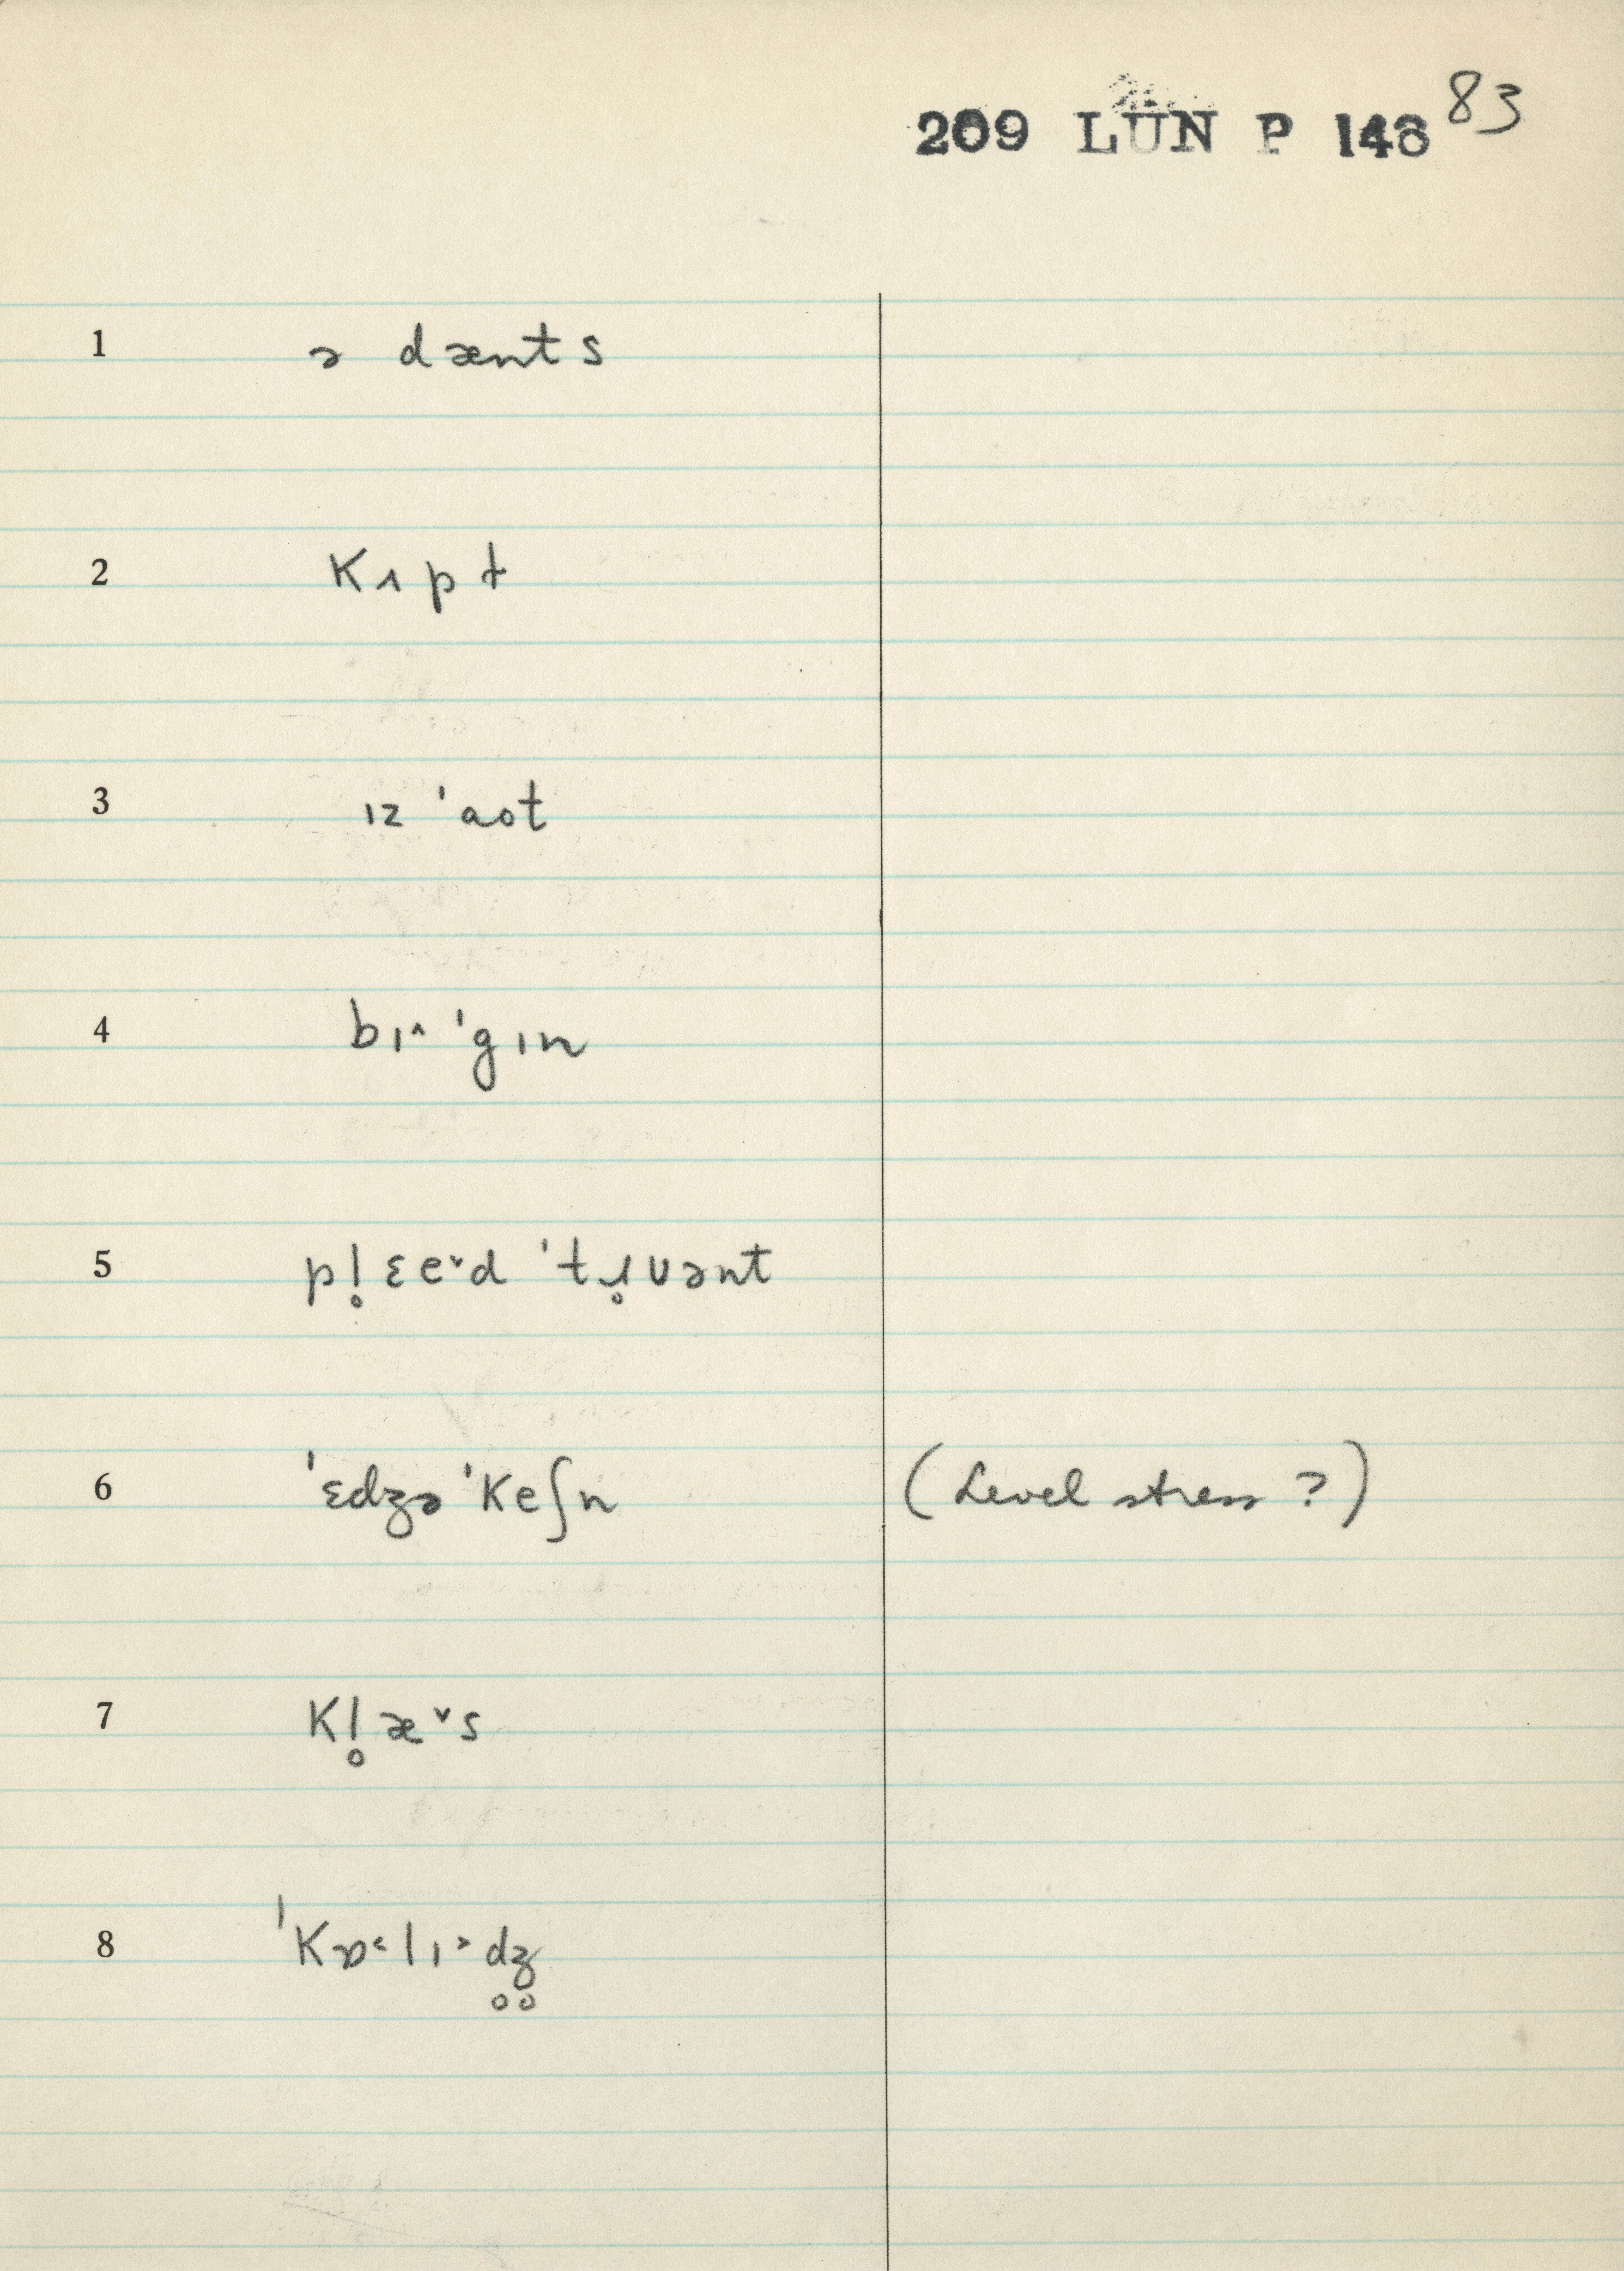 209 LUN P 148 83
1 ə dænts
2 kɪpt
3 ɪz ˈaot
4 bɪ˄ ˈgɪn
5 pl̥ɛe˅d ˈtɹ̥ʊənt
6 ˈɛdʒəˈkeʃn (Level stress ?)
7 kl̥æ˅s
8 ˈkɒ˂lɪ˃d̥ʒ̥